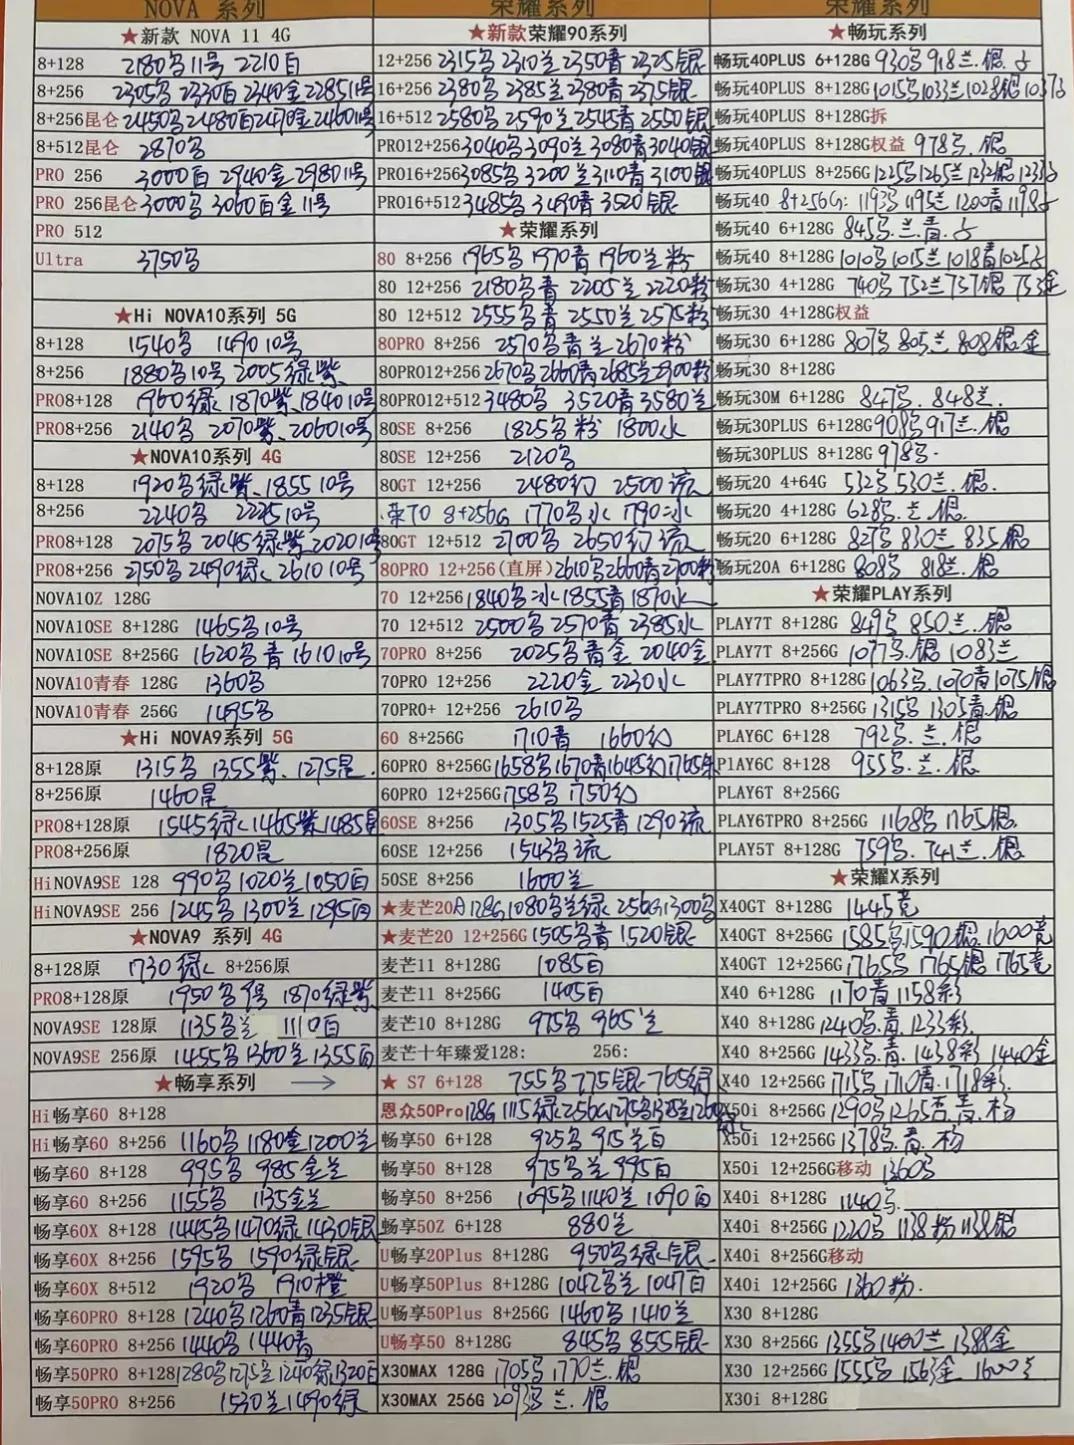 NOVA 系列
★新款 NOVA 11 4G
8+128 2180乌11号 2210百
8+256 2305乌 2330百 2340金 2285 11号
8+256昆仑 2450乌 2480百 2470金 2460 11号
8+512昆仑 2870乌
PRO 256 3000百 2940金 2980 11号
PRO 256昆仑 3000乌 3060百金 11号
PRO 512
Ultra 3750乌
★Hi NOVA10系列 5G
8+128 1540乌 1490 10号
8+256 1880乌10号 2005绿紫
PRO8+128 1960绿 1870紫 1840 10号
PRO8+256 2140乌 2070紫 2060 10号
★NOVA10系列 4G
8+128 1920乌绿紫 1855 10号
8+256 2240乌 2225 10号
PRO8+128 2075乌 2045绿紫 2020 10号
PRO8+256 2750乌 2490绿 2610 10号
NOVA10Z 128G
NOVA10SE 8+128G 1465乌10号
NOVA10SE 8+256G 1620乌青 1610 10号
NOVA10青春 128G 1360乌
NOVA10青春 256G 1495乌
★Hi NOVA9系列 5G
8+128原 1315乌 1355紫 1275昆
8+256原 1460昆
PRO8+128原 1545绿 1465紫 1485昆
PRO8+256原 1820昆
HiNOVA9SE 128 990乌 1020兰 1050百
HiNOVA9SE 256 1245乌 1300兰 1295百
★NOVA9 系列 4G
8+128原 1730绿 8+256原
PRO8+128原 1950乌 1870绿紫
NOVA9SE 128原 1135乌兰 1110百
NOVA9SE 256原 1455乌 1360兰 1355百
★畅享系列 →
Hi畅享60 8+128
Hi畅享60 8+256 1160乌 1180金 1200兰
畅享60 8+128 995乌 985金兰
畅享60 8+256 1155乌 1135金兰
畅享60X 8+128 1445乌 1470绿 1430银
畅享60X 8+256 1595乌 1590绿银
畅享60X 8+512 1920乌 1910橙
畅享60PRO 8+128 1240乌 1260青 1235银
畅享60PRO 8+256 1440乌 1440青
畅享50PRO 8+128 1280乌 1275兰 1240绿 1320百
畅享50PRO 8+256 1530兰 1490绿
荣耀系列
★新款荣耀90系列
12+256 2315乌 2310兰 2350青 2325银
16+256 2380乌 2385兰 2380青 2375银
16+512 2580乌 2590兰 2545青 2550银
PRO12+256 3040乌 3090兰 3080青 3040银
PRO16+256 3085乌 3200兰 3110青 3100银
PRO16+512 3485乌 3490青 3520银
★荣耀系列
80 8+256 1965乌 1970青 1960兰粉
80 12+256 2180乌青 2205兰 2220粉
80 12+512 2555乌青 2550兰 2575粉
80PRO 8+256 2570乌青兰 2670粉
80PRO12+256 2670乌 2660青 2685兰 2900粉
80PRO12+512 3480乌 3520青 3580兰
80SE 8+256 1825乌粉 1800水
80SE 12+256 2120乌
80GT 12+256 2480幻 2500流
荣70 8+256G 1770乌水 1790冰
80GT 12+512 2700乌 2650幻流
80PRO 12+256(直屏) 2610乌 2660青 2700粉
70 12+256 1840乌冰 1855青 1870水
70 12+512 2500乌 2570青 2385水
70PRO 8+256 2025乌青金 2040金
70PRO 12+256 2220金 2230水
70PRO+ 12+256 2610乌
60 8+256G 1710青 1660幻
60PRO 8+256G 1658乌 1670青 1645幻 1765朱
60PRO 12+256G 1758乌 1750幻
60SE 8+256 1305乌 1525青 1290流
60SE 12+256 1543乌流
50SE 8+256 1600兰
★麦芒20A 128G 1080乌兰绿 256G 1300乌
★麦芒20 12+256G 1505乌青 1520银
麦芒11 8+128G 1085百
麦芒11 8+256G 1405百
麦芒10 8+128G 975乌 965兰
麦芒十年臻爱128: 256:
★ S7 6+128 755乌 775银 765绿
恩众50Pro 128G 1115绿 256G
畅享50 6+128 925乌 915兰百
畅享50 8+128 975乌兰 995百
畅享50 8+256 1095乌 1140兰 1090百
畅享50Z 6+128 880兰
U畅享20Plus 8+128G 950乌绿银
U畅享50Plus 8+128G 1042乌兰 1047百
U畅享50Plus 8+256G 1460乌 1410兰
U畅享50 8+128G 845乌 855银
X30MAX 128G 1705乌 1770兰.银
X30MAX 256G 2093乌 兰.银
荣耀系列
★畅玩系列
畅玩40PLUS 6+128G 930乌 918兰.银
畅玩40PLUS 8+128G 1015乌 1033兰 1028银 1037
畅玩40PLUS 8+128G拆
畅玩40PLUS 8+128G权益 978乌.银
畅玩40PLUS 8+256G 1225乌 1265兰 1232银 1233
畅玩40 8+256G: 1193乌 1195兰 1200青 1198
畅玩40 6+128G 845乌.兰.青.
畅玩40 8+128G 1010乌 1015兰 1018青 1025
畅玩30 4+128G 740乌 752兰 757银 753金
畅玩30 4+128G权益
畅玩30 6+128G 807乌 805兰 808银金
畅玩30 8+128G
畅玩30M 6+128G 847乌. 848兰.
畅玩30PLUS 6+128G 908乌 917兰.银
畅玩30PLUS 8+128G 978乌.
畅玩20 4+64G 532乌 530兰.银.
畅玩20 4+128G 628乌.兰.银.
畅玩20 6+128G 827乌 830兰 835银
畅玩20A 6+128G 808乌 818兰.银
★荣耀PLAY系列
PLAY7T 8+128G 849乌 850兰.银
PLAY7T 8+256G 1077乌.银 1083兰
PLAY7TPRO 8+128G 1063乌.1070青 1075银
PLAY7TPRO 8+256G 1315乌 1305青.银
PLAY6C 6+128 792乌.兰.银
PlAY6C 8+128 955乌.兰.银
PLAY6T 8+256G
PLAY6TPRO 8+256G 1168乌 1165银
PLAY5T 8+128G 759乌.741兰.银
★荣耀X系列
X40GT 8+128G 1445竞
X40GT 8+256G 1585乌 1590银 1600竞
X40GT 12+256G 1765乌 1765银 1765竞
X40 6+128G 1170青 1158彩
X40 8+128G 1240乌.青 1233彩
X40 8+256G 1433乌.青 1438彩 1440金
X40 12+256G 1715乌 1710青 1718彩
X50i 8+256G 1290乌 1265杏青.粉
X50i 12+256G 1378乌.青.粉
X50i 12+256G移动 1360乌
X40i 8+128G 1140乌.
X40i 8+256G 1220乌 1138粉 1138银
X40i 8+256G移动
X40i 12+256G 1360粉.
X30 8+128G
X30 8+256G 1355乌 1400兰 1388金
X30 12+256G 1555乌 1563金 1600兰
X30i 8+128G